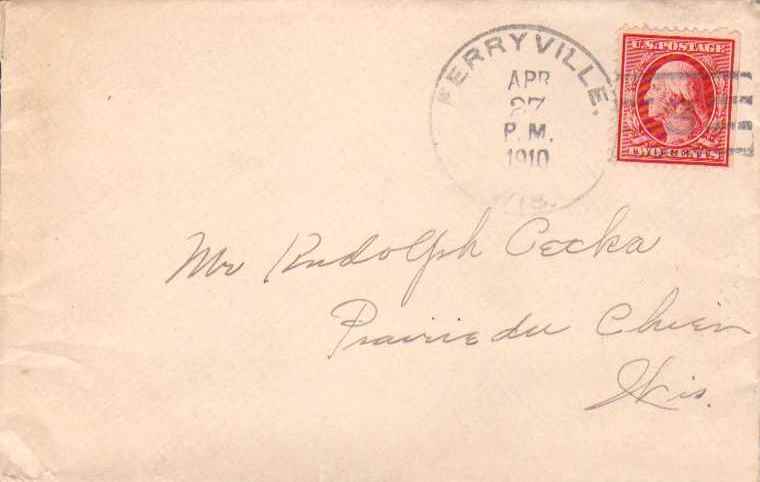 FERRYVILLE,
APR
27
P.M.
1910
WIS.
U.S. POSTAGE
TWO CENTS
Mr Rudolph Cecka
Prairie du Chien
Wis.